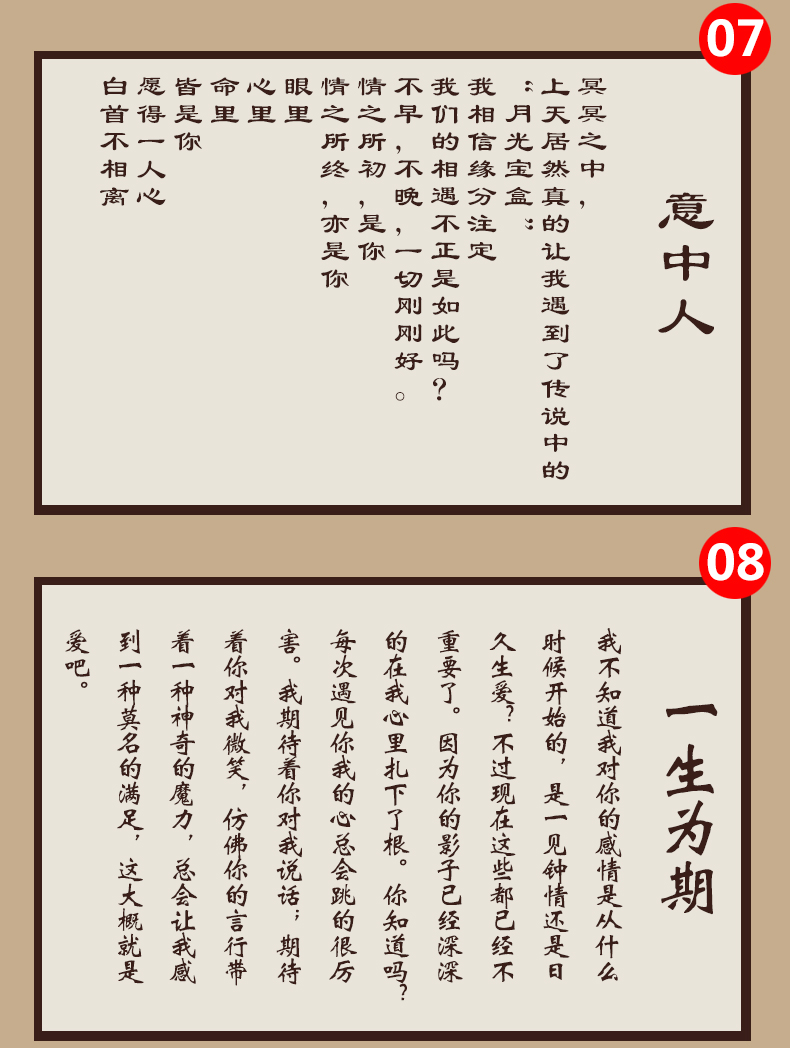 07
意中人
冥冥之中，
上天居然真的让我遇到了传说中的
“月光宝盒”
我相信缘分注定
我们的相遇不正是如此吗？
不早，不晚，一切刚刚好。
情之所初，是你
情之所终，亦是你
眼里
心里
命里
皆是你
愿得一人心
白首不相离
08
一生为期
我不知道我对你的感情是从什么
时候开始的，是一见钟情还是日
久生爱？不过现在这些都已经不
重要了。因为你的影子已经深深
的在我心里扎下了根。你知道吗？
每次遇见你我的心总会跳的很厉
害。我期待着你对我说话；期待
着你对我微笑，仿佛你的言行带
着一种神奇的魔力，总会让我感
到一种莫名的满足，这大概就是
爱吧。